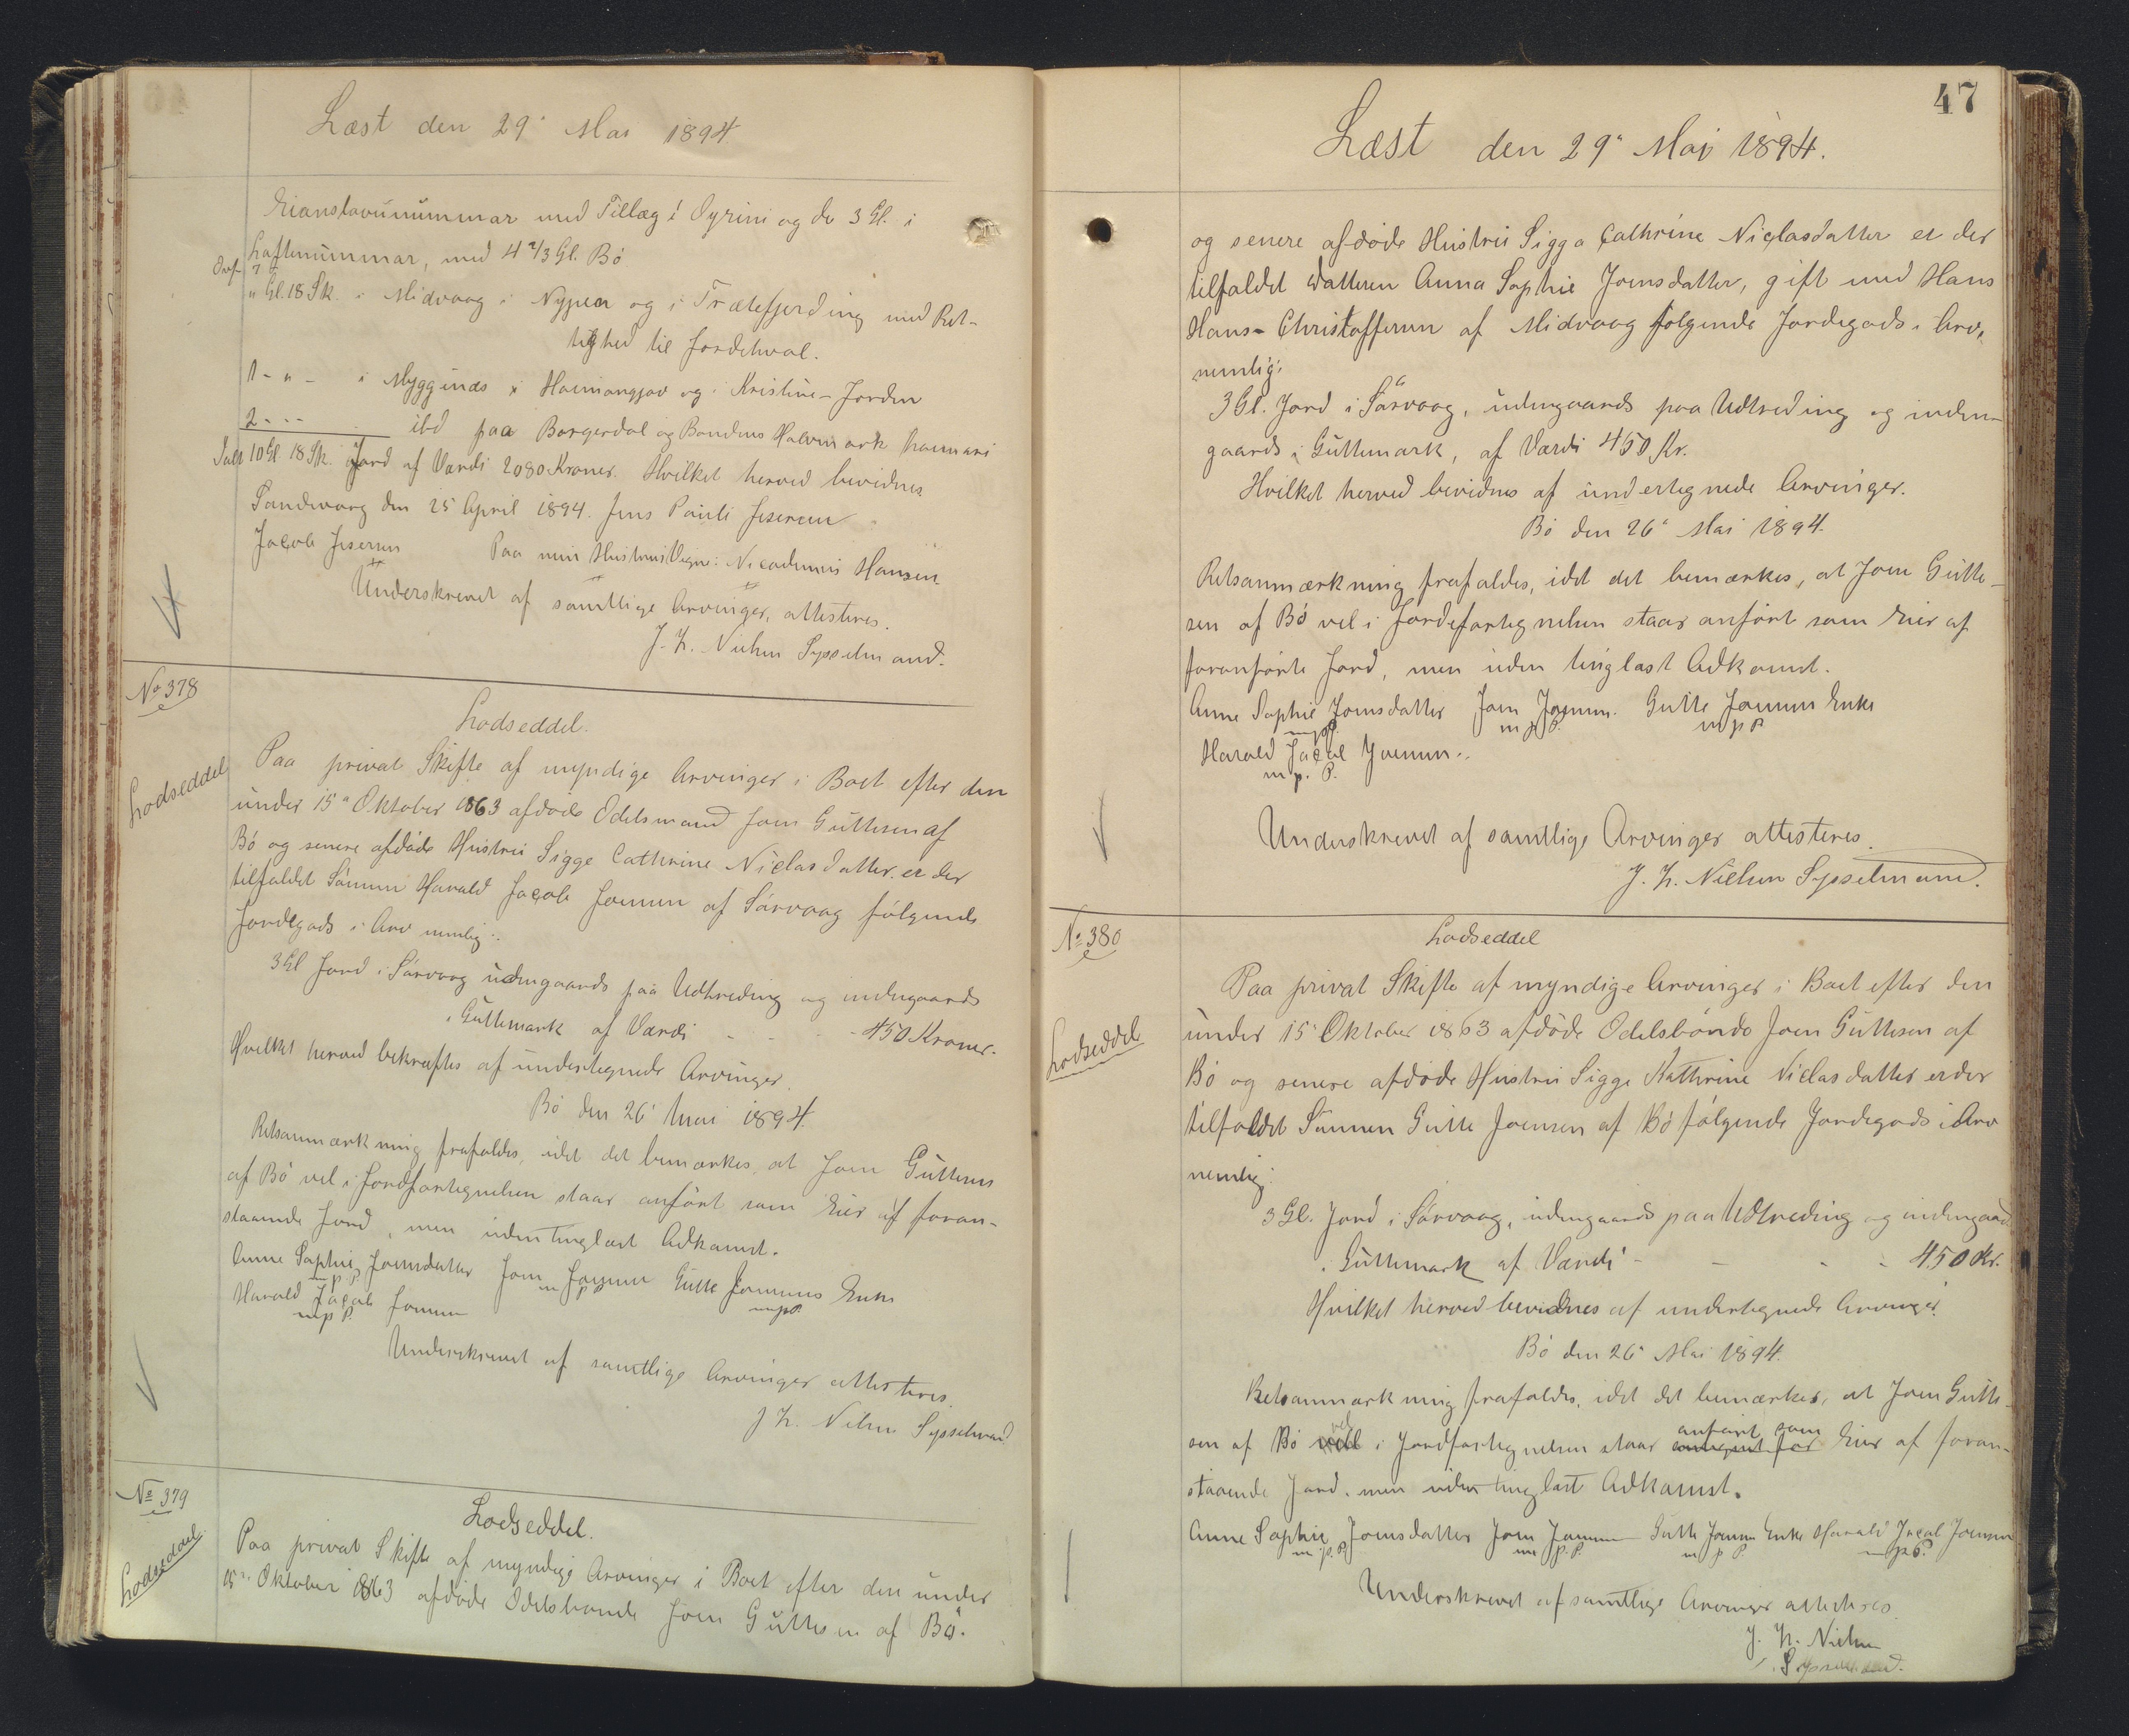 Læst den 29' Mai 1894
Eianstovunummar med Tillæg i Oyrini og de 3 Gl. i
Loftenummar, med 4 2/3 Gl. Bö
" Gl. 18 Sk. i Midvaag i Nypen og i Trætefjerding med Ret-
tighed til Jordehval.
1 - " - i Myggenæs i Haimangjov og i Kristine-Jorden
2 - - - ibd paa Borgerdal og Bondens Halvmark haimari
Ialt 10 Gl 18 Sk. Jord af Værdi 2080 Kroner. Hvilket herved bevidnes
Sandevaag den 25 April 1894. Jens Pauli Jesersen
Jacob Jesersen Paa min Hustrus Vegne: Nicodemus Hansen
Underskrevet af samtlige Arvinger, attesteres.
J. H. Nielsen Sysselmand.
No 378
Lodseddel.
Lodseddel
Paa privat Skifte af myndige Arvinger i Boet efter den
under 15" Oktober 1863 afdøde Odelsmand Joen Guttesen af
Bö og senere afdöde Hustru Sigge Cathrine Niclasdatter er der
tilfaldet Sønnen Harald Jacob Joensen af Sörvaag fölgende
Jordegods i Arv nemlig:
3 Gl Jord i Sörvaag udengaards paa Udtreding og indengaards
i Guttemark af Værdi - - - 450 Kroner.
Hvilket herved bekræftes af undertegnede Arvinger.
Bö den 26' Mai 1894.
Retsanmærkning frafaldes, idet det bemærkes, at Joen Guttesen
af Bö vel i Jordfortegnelsen staar anfört som Eier af foran-
staaende Jord, men uden tinglæst Adkomst.
Anne Sophie Joensdatter Joen Joensen Gutte Joensens Enke
m p P m p P m p P.
Harald Jacob Joensen
m p P.
Underskrevet af samtlige Arvinger attesteres.
J. H. Nielsen Sysselmand
No 379
Lodseddel.
Lodseddel.
Paa privat Skifte af myndige Arvinger i Boet efter den under
15" Oktober 1863 afdöde Odelsbonde Joen Guttesen af Bö.
47
Læst den 29" Mai 1894.
og senere afdöde Hustru Sigga Cathrine Niclasdatter er der
tilfaldet Datteren Anna Sophie Joensdatter, gift med Hans
Hans- Christoffersen af Midvaag fölgende Jordegods i Arv,
nemlig:
3 Gl. Jord i Sörvaag, udengaards paa Udtreding og inden-
gaards i Guttemark, af Værdi 450 Kr.
Hvilket herved bevidnes af undertegnede Arvinger.
Bö den 26' Mai 1894.
Retsanmærkning frafaldes, idet det bemærkes, at Joen Gutte-
sen af Bö vel i Jordefortegnelsen staar anfört som Eier af
foranførte Jord, men uden tinglæst Adkomst.
Anne Sophie Joensdatter Joen Joensen. Gutte Joensens Enke
m p P. m p P. m p P
Harald Jacob Joensen.
m p. P.
Underskrevet af samtlige Arvinger attesteres.
J. H. Nielsen Sysselmand.
No 380
Lodseddel
Lodseddel
Paa privat Skifte af myndige Arvinger i Boet efter den
under 15' Oktober 1863 afdöde Odelsbonde Joen Guttesen af
Bö og senere afdöde Hustru Sigge Kathrine Niclasdatter er der
tilfaldet Sönnen Gutte Joensen af Bö fölgende Jordegods i Arv
nemlig:
3 Gl. Jord i Sörvaag, udengaards paa Udtreding og indengaards
i Guttemark af Værdi - - - - 450 Kr.
Hvilket herved bevidnes af undertegnede Arvinger.
Bö den 26' Mai 1894.
Retsanmærkning frafaldes, idet det bemærkes, at Joen Gutte-
sen af Bö vel i Jordfortegnelsen staar anfört som Eier af foran-
staaende Jord, men uden tinglæst Adkomst.
Anne Sophie Joensdatter Joen Joensen Gutte Joensens Enke Harald Jacob Joensen
m. p. P. m p. P. m p P m p P.
Underskrevet af samtlige Arvinger attesteres.
J. H. Nielsen
Sysselmand.